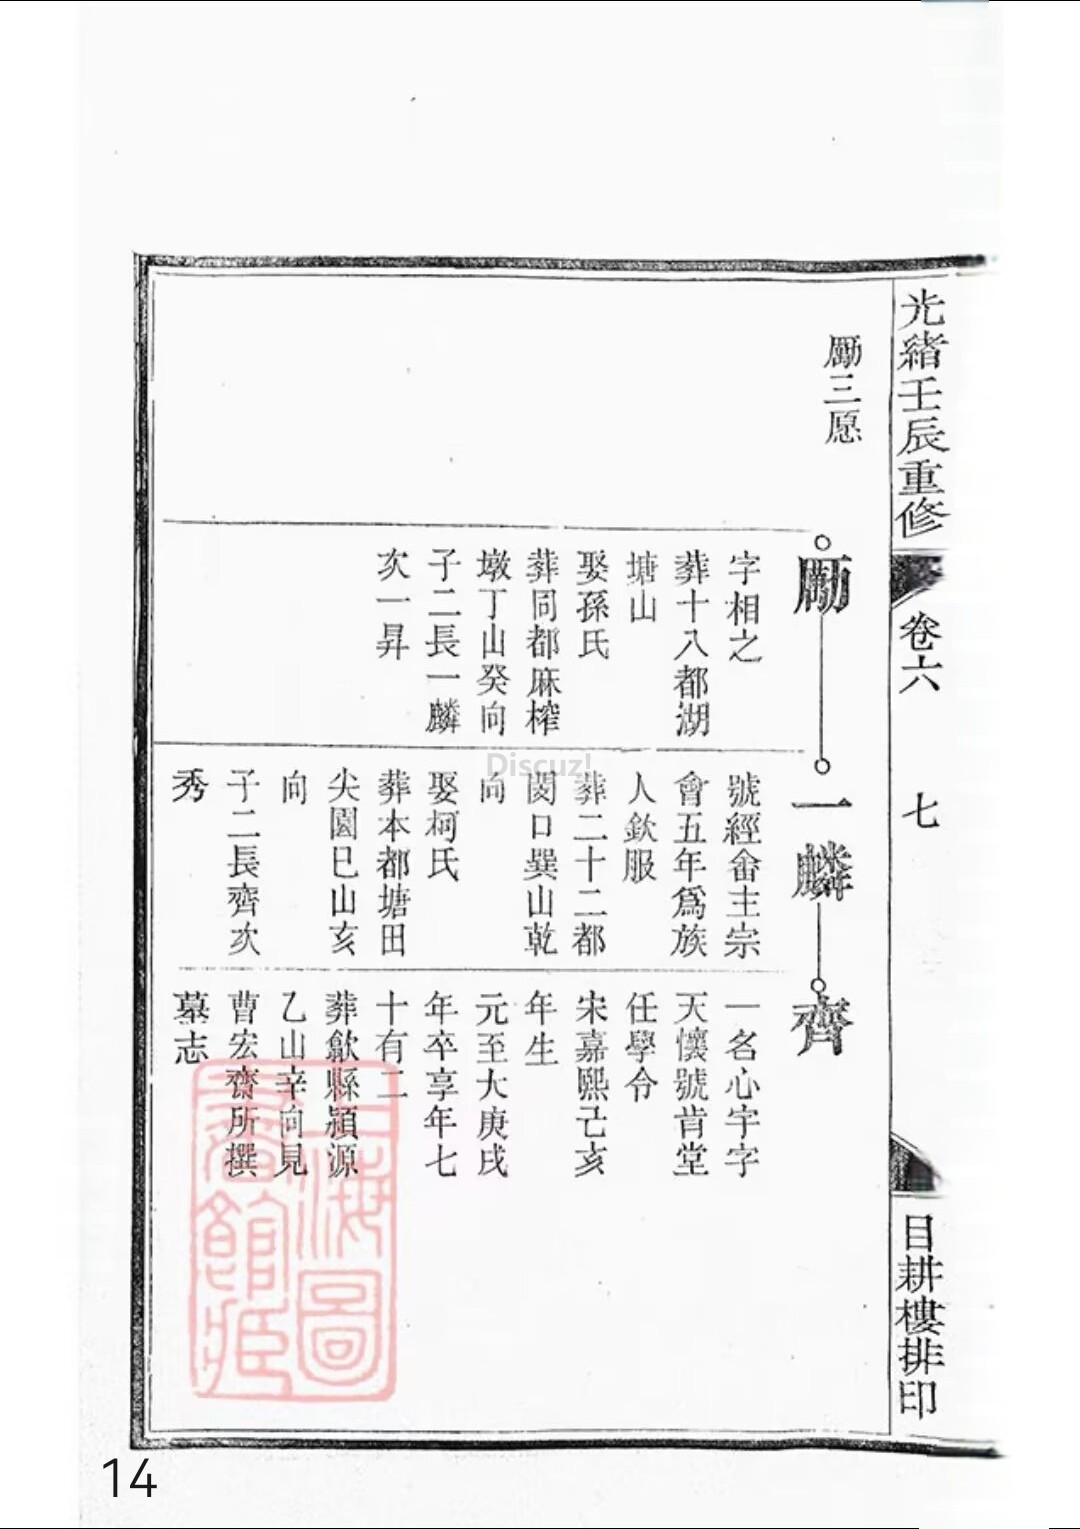 光緒壬辰重修
卷六
七
目耕樓排印
勵三愿
勵
字相之
葬十八都湖
塘山
娶孫氏
葬同都麻榨
墩丁山癸向
子二長一麟
次一昇
一麟
號經畬主宗
會五年爲族
人欽服
葬二十二都
閔口巽山乾
向
娶柯氏
葬本都塘田
尖園巳山亥
向
子二長齊次
秀
齊
一名心宇字
天懷號肯堂
任學令
宋嘉熙己亥
年生
元至大庚戌
年卒享年七
十有二
葬歙縣潁源
乙山辛向見
曹宏齋所撰
墓志
上海圖
書館藏
Discuz!
14